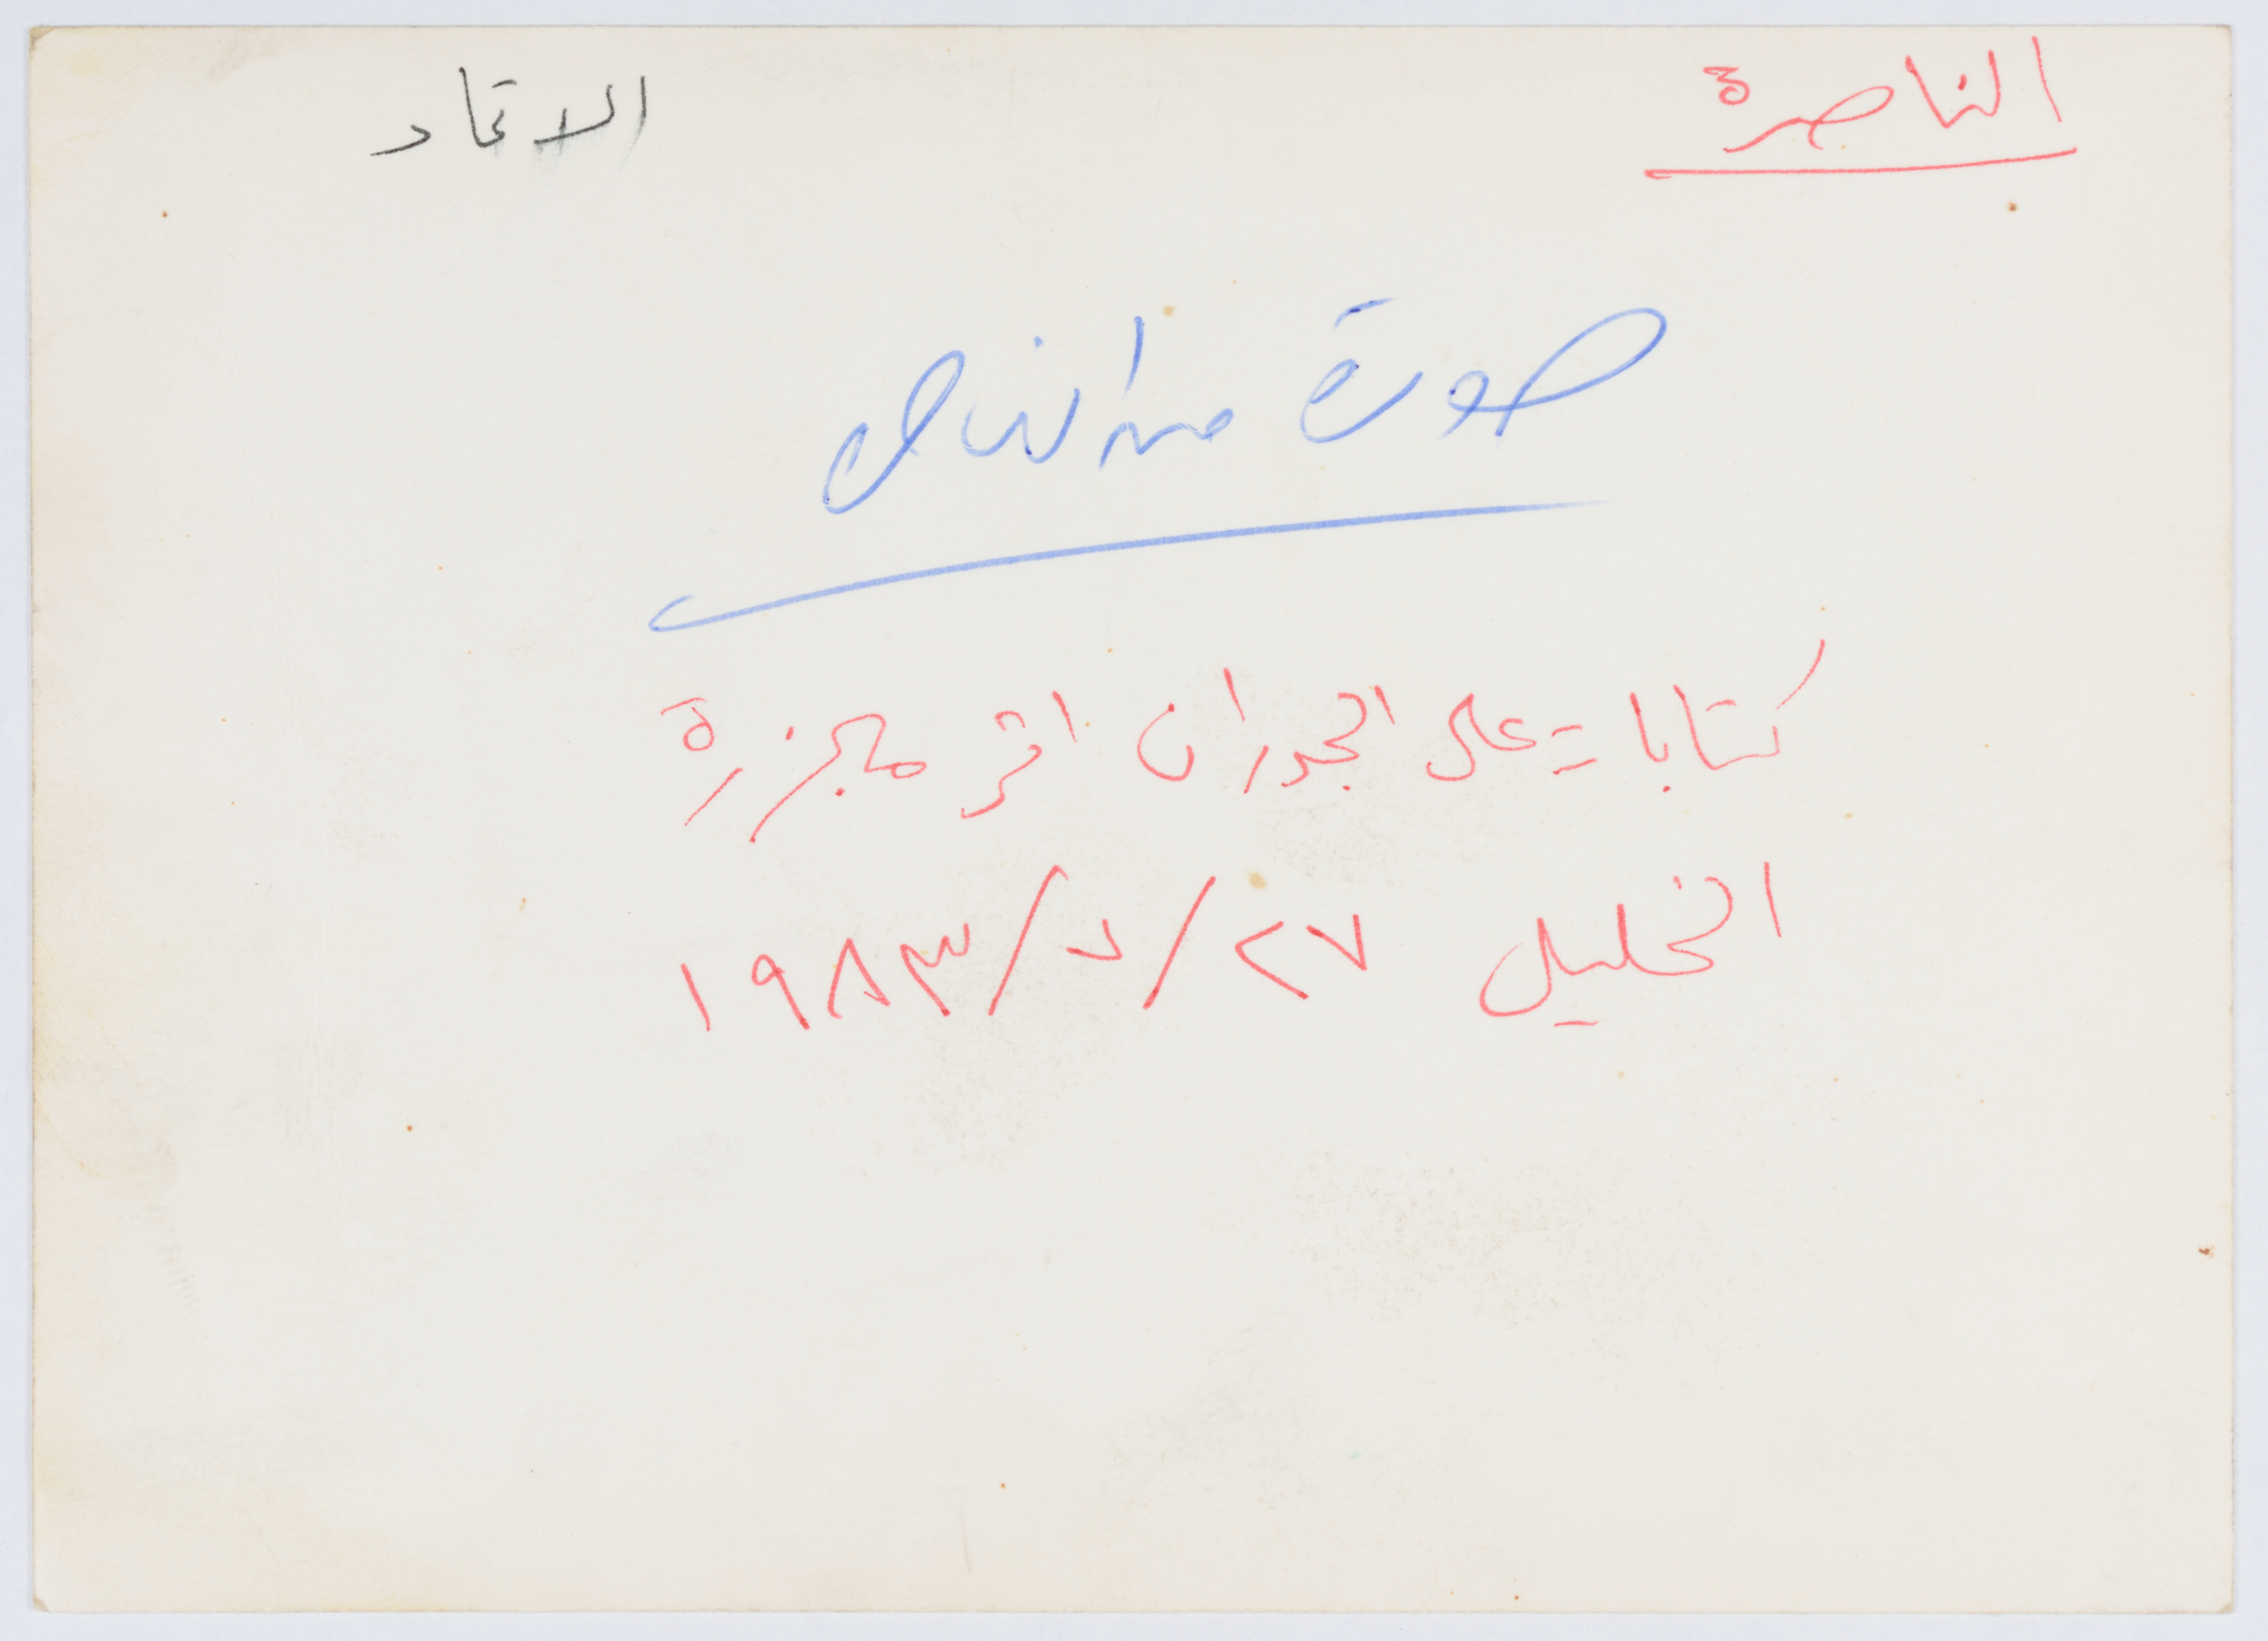 الناصرة
الاتحاد
صورة من الخليل
كتابات على الجدران اثر مجزرة
الخليل ٢٧/٧/١٩٨٣